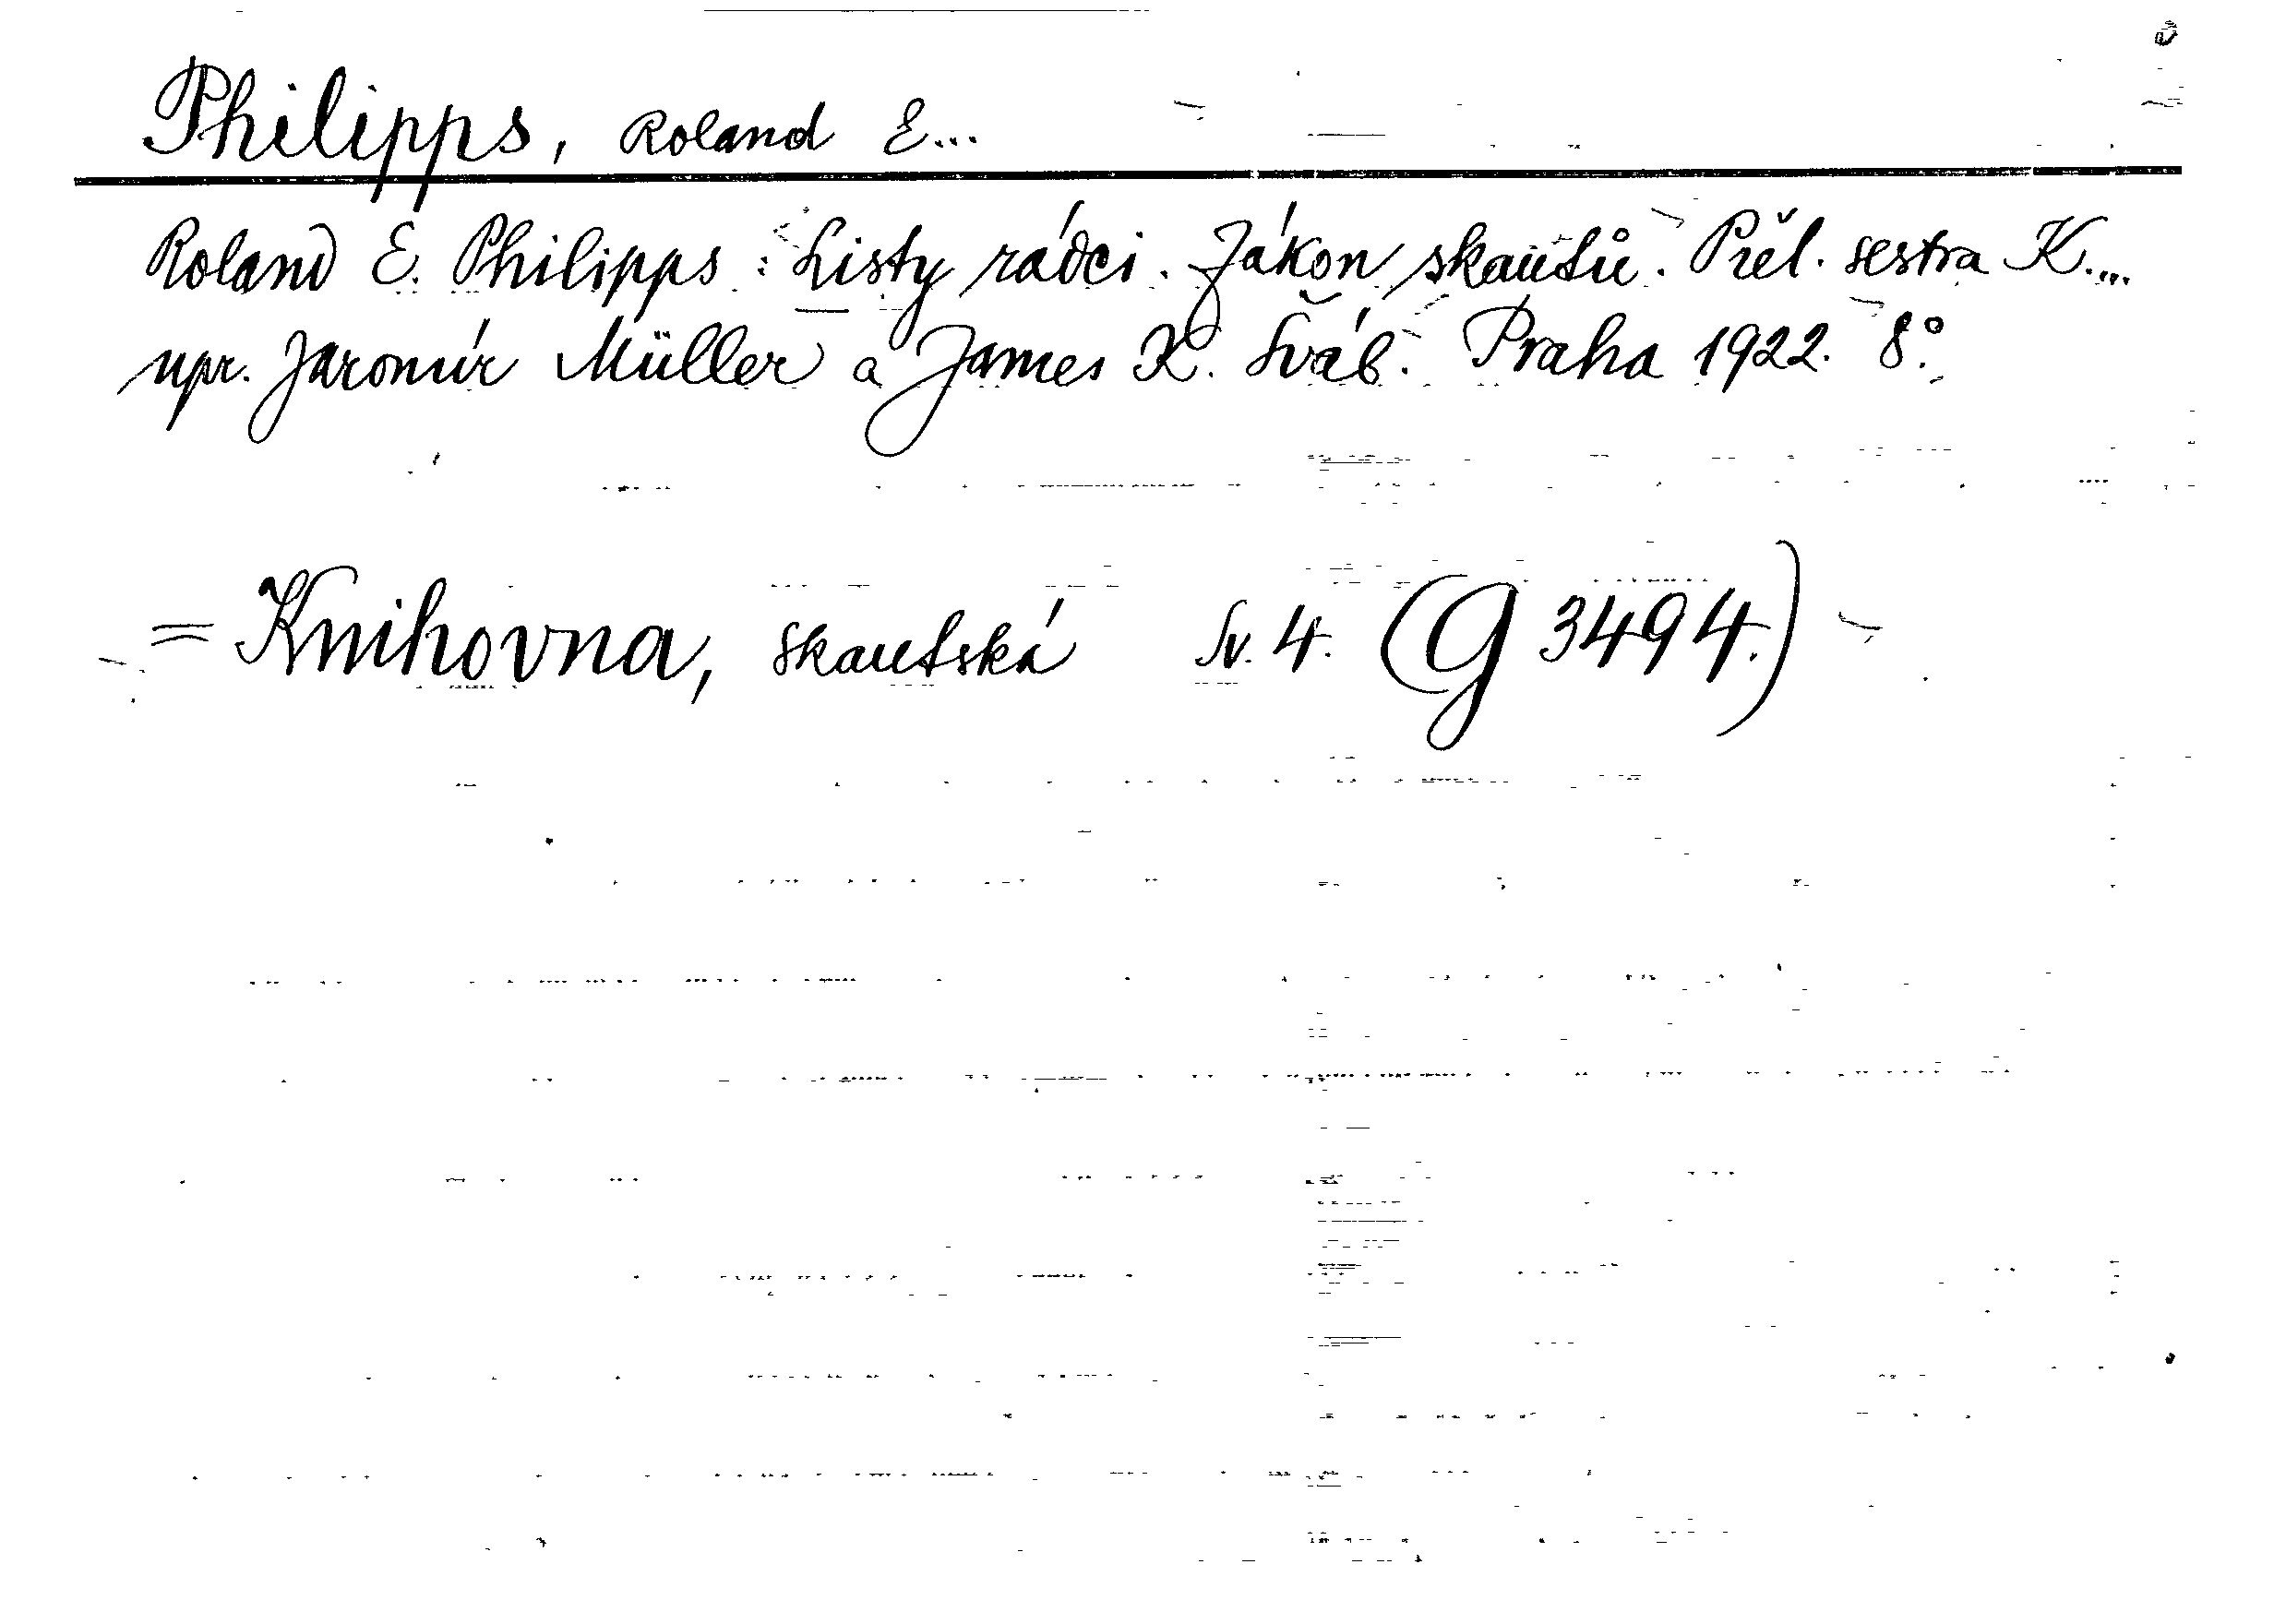 Philipps, Roland E...
Roland E. Philipps: Listy rádci. Zákon skautů. Přel. sestra K....
upr. Jaromír Müller a James K. Šváb. Praha 1922. 8°.
= Knihovna, skautská Sv. 4. (G 3494.)